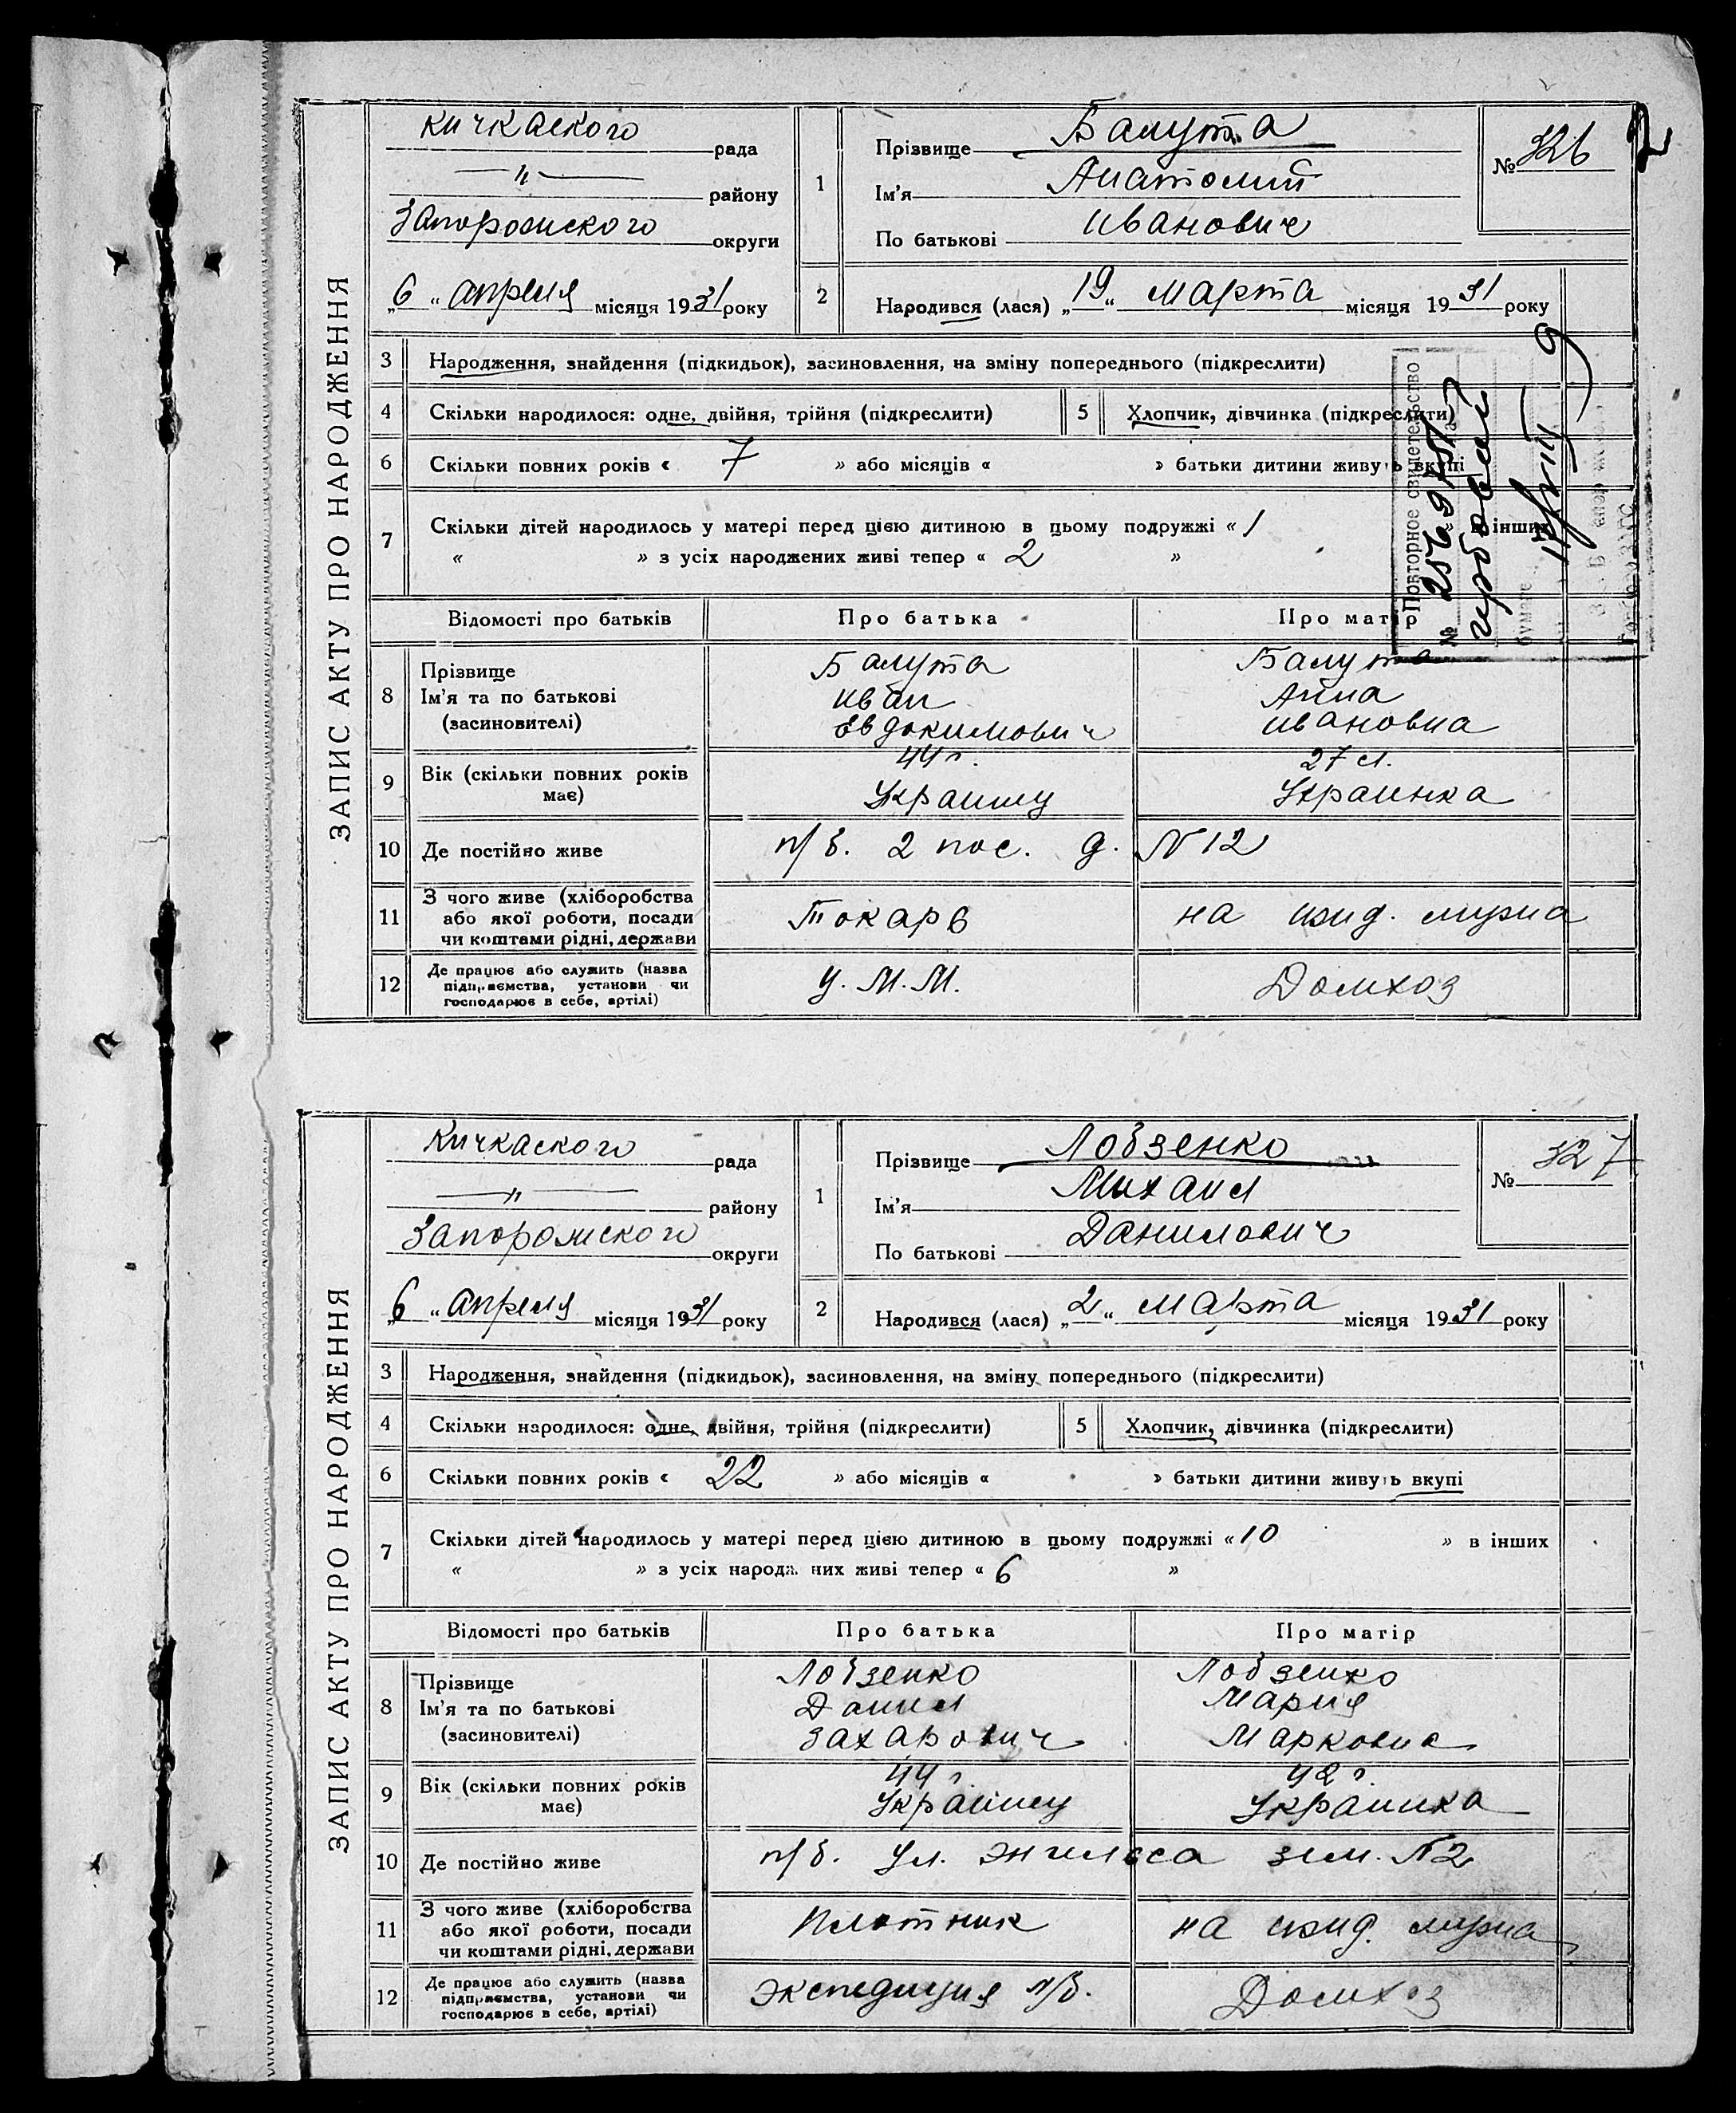 2
ЗАПИС АКТУ ПРО НАРОДЖЕННЯ
Кичкаского рада
—〃— району
Запорожского округи
„6“ апреля місяця 1931 року
1 Прізвище Балута
Ім'я Анатолий
По батькові Иванович
№ 326
2 Народився (лася) „19“ марта місяця 1931 року
3 Народження, знайдення (підкидьок), засиновлення, на зміну попереднього (підкреслити)
4 Скільки народилося: одне, двійня, трійня (підкреслити) 5 Хлопчик, дівчинка (підкреслити)
6 Скільки повних років « 7 » або місяців « » батьки дитини живуть вкупі
7 Скільки дітей народилось у матері перед цією дитиною в цьому подружжі « 1 в інших
« » з усіх народжених живі тепер « 2 »
Повторное свидетельство
№
Відомості про батьків Про батька Про матір
8 Прізвище Балута Балута
Ім'я та по батькові Иван Анна
(засиновителі) Евдокимович Ивановна
9 Вік (скільки повних років має) 44 г. 27 л.
Украинец Украинка
10 Де постійно живе п/б. 2 пос. д. №12
11 З чого живе (хліборобства
або якої роботи, посади Токарь на ижд. мужа
чи коштами рідні, держави
12 Де працює або служить (назва
підприємства, установи чи У. М. М. Домхоз
господарює в себе, артілі)
ЗАПИС АКТУ ПРО НАРОДЖЕННЯ
Кичкаского рада
—〃— району
Запорожского округи
„6“ апреля місяця 1931 року
1 Прізвище Лобзенко
Ім'я Михаил
По батькові Данилович
№ 327
2 Народився (лася) „2“ марта місяця 1931 року
3 Народження, знайдення (підкидьок), засиновлення, на зміну попереднього (підкреслити)
4 Скільки народилося: одне, двійня, трійня (підкреслити) 5 Хлопчик, дівчинка (підкреслити)
6 Скільки повних років « 22 » або місяців « » батьки дитини живуть вкупі
7 Скільки дітей народилось у матері перед цією дитиною в цьому подружжі « 10 » в інших
« » з усіх народжених живі тепер « 6 »
Відомості про батьків Про батька Про матір
8 Прізвище Лобзенко Лобзенко
Ім'я та по батькові Данил Мария
(засиновителі) Захарович Марковна
9 Вік (скільки повних років має) 44 г. 42 г.
Украинец Украинка
10 Де постійно живе п/б. ул. Энгельса зем. №2
11 З чого живе (хліборобства
або якої роботи, посади Плотник на ижд. мужа
чи коштами рідні, держави
12 Де працює або служить (назва
підприємства, установи чи Экспедиция п/б. Домхоз
господарює в себе, артілі)